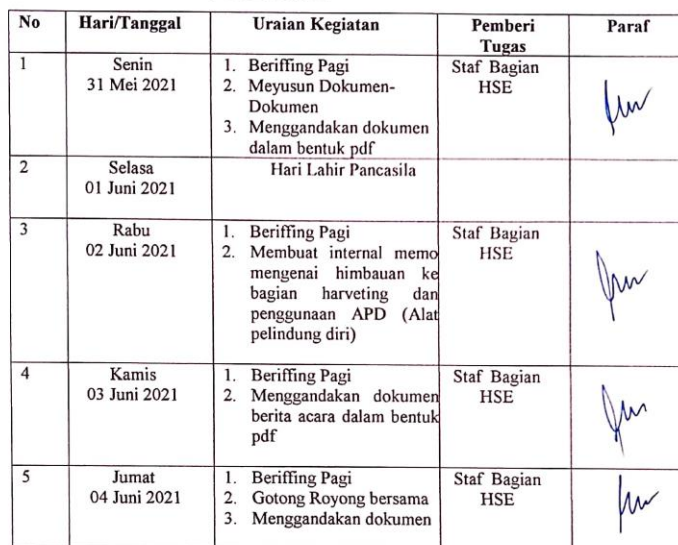 No Hari/Tanggal Uraian Kegiatan Pemberi Tugas Paraf
1 Senin
31 Mei 2021
1. Beriffing Pagi
2. Meyusun Dokumen-
Dokumen
3. Menggandakan dokumen
dalam bentuk pdf
Staf Bagian
HSE
2 Selasa
01 Juni 2021
Hari Lahir Pancasila
3 Rabu
02 Juni 2021
1. Beriffing Pagi
2. Membuat internal memo
mengenai himbauan ke
bagian harveting dan
penggunaan APD (Alat
pelindung diri)
Staf Bagian
HSE
4 Kamis
03 Juni 2021
1. Beriffing Pagi
2. Menggandakan dokumen
berita acara dalam bentuk
pdf
Staf Bagian
HSE
5 Jumat
04 Juni 2021
1. Beriffing Pagi
2. Gotong Royong bersama
3. Menggandakan dokumen
Staf Bagian
HSE